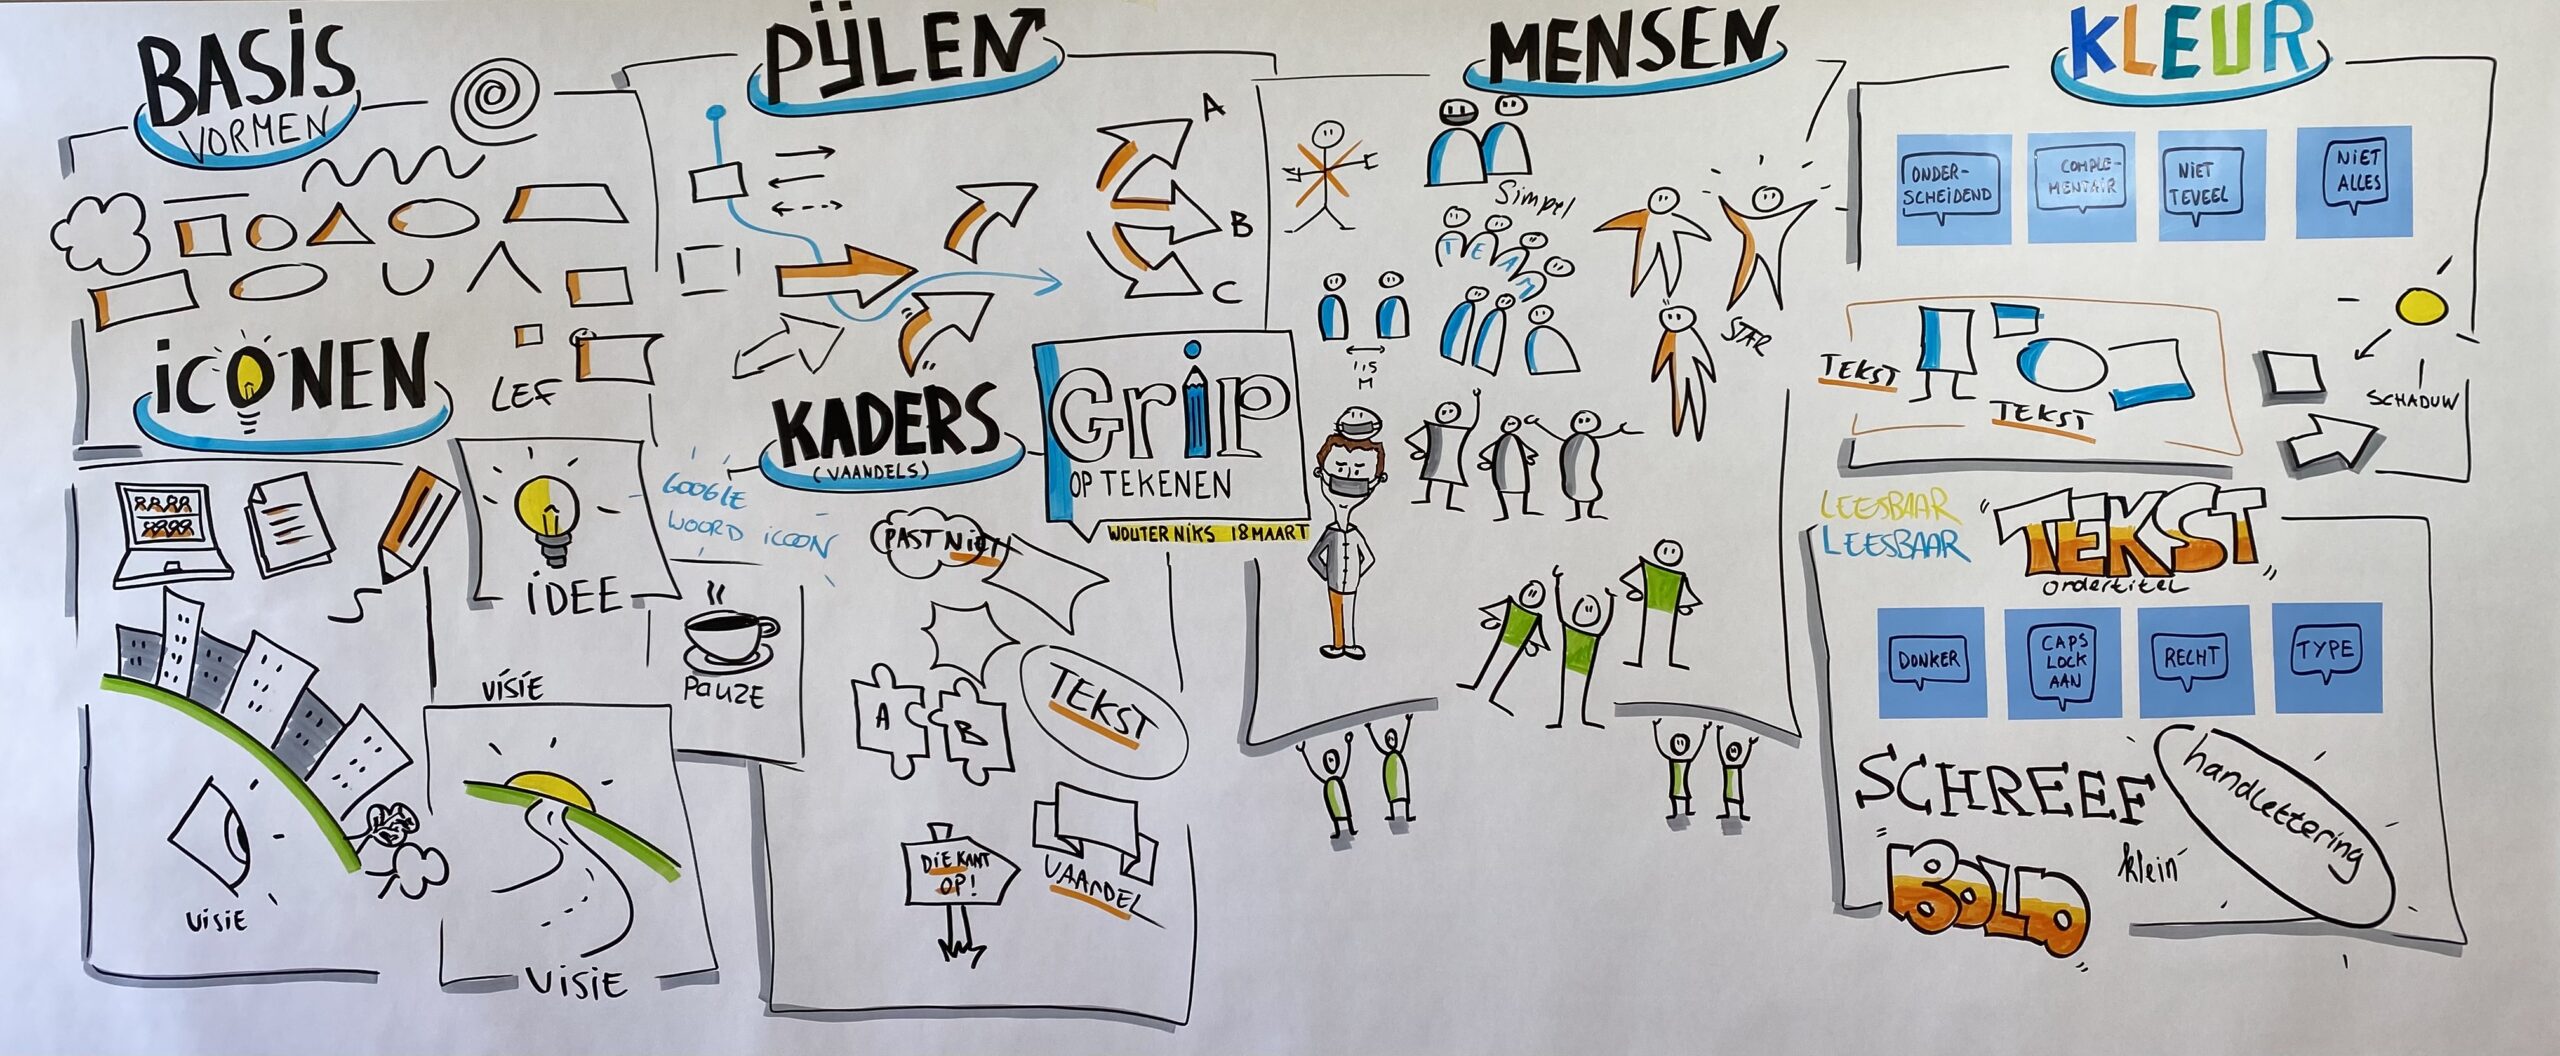 BASIS
VORMEN
LEF
ICONEN
IDEE
VISIE
VISIE
VISIE
PAUZE
GOOGLE
WOORD ICOON
PIJLEN
A
B
C
KADERS
(VAANDELS)
PAST NIET
A
B
TEKST
DIE KANT
OP!
VAANDEL
Grip
OP TEKENEN
WOUTER NIKS 18 MAART
MENSEN
Simpel
TEAM
1,5
M
STAR
KLEUR
ONDER-
SCHEIDEND
COMPLE-
MENTAIR
NIET
TEVEEL
NIET
ALLES
TEKST
TEKST
SCHADUW
LEESBAAR
LEESBAAR
TEKST
ondertitel
DONKER
CAPS
LOCK
AAN
RECHT
TYPE
SCHREEF
handlettering
BOLD
klein